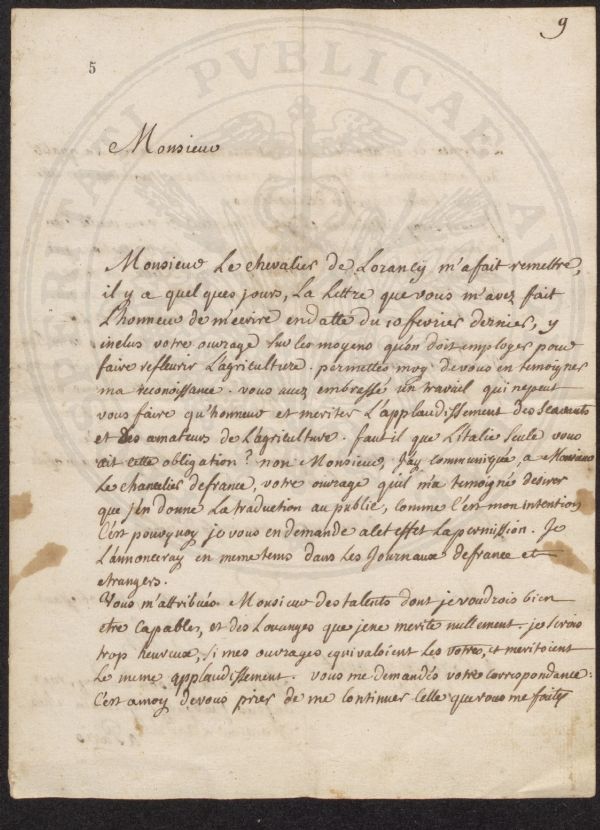 9
5
PERITATI PVBLICAE
Monsieur
Monsieur Le chevalier de Lozancy m'a fait remettre,
il y a quelques jours, La Lettre que vous m'avez fait
L'honneur de m'ecrire en datte du 10 fevrier dernier, y
inclus votre ouvrage sur les moyens qu'on doit employer pour
faire refleurir L'agriculture. permettes moy de vous en temoigner
ma reconoissance. vous avez embrassé un travail qui ne peut
vous faire qu'honneur et meriter L'applaudissement des Scavants
et des amateurs de L'agriculture. faut il que L'italie seule vous
ait cette obligation? non Monsieur, J'ay communiqué, a Monsieur
Le chancelier de france, votre ouvrage qu'il m'a temoigné desirer
que j'en donne La traduction au public, comme c'est mon intention
C'est pourquoy je vous en demande a cet effet La permission. Je
L'annonceray en meme tems dans Les Journaux de france et
etrangers.
Vous m'attribués Monsieur des talents dont je voudrois bien
etre capable, et des Louanges que je ne merite nullement. je serois
trop heureux, si mes ouvrages equivaloient les votres, et meritoient
Le meme applaudissement. vous me demandés votre correspondance:
C'est a moy de vous prier de me continuer Celle que vous me faites